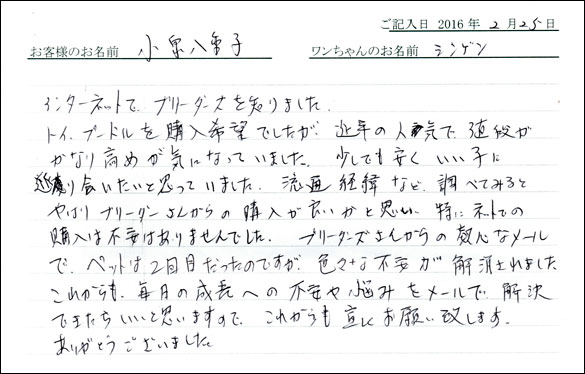 ご記入日 2016年 2月 25日
お客様のお名前 小泉八重子 ワンちゃんのお名前 シンゲン
インターネットで、ブリーダーズを知りました。
トイ、プードルを購入希望でしたが、近年の人気で、値段が
かなり高めが気になっていました。少しでも安く、いい子に
巡り会いたいと思っていました。流通経緯など、調べてみると
やはりブリーダーさんからの購入が良いかと思い、特にネットでの
購入は不安はありませんでした。ブリーダーズさんからの熱心なメール
で、ペットは2回目だったのですが、色々な不安が解消されました
これからも、毎日の成長への不安や悩みをメールで、解決
できたらいいと思いますので、これからも宜しくお願い致します。
ありがとうございました。